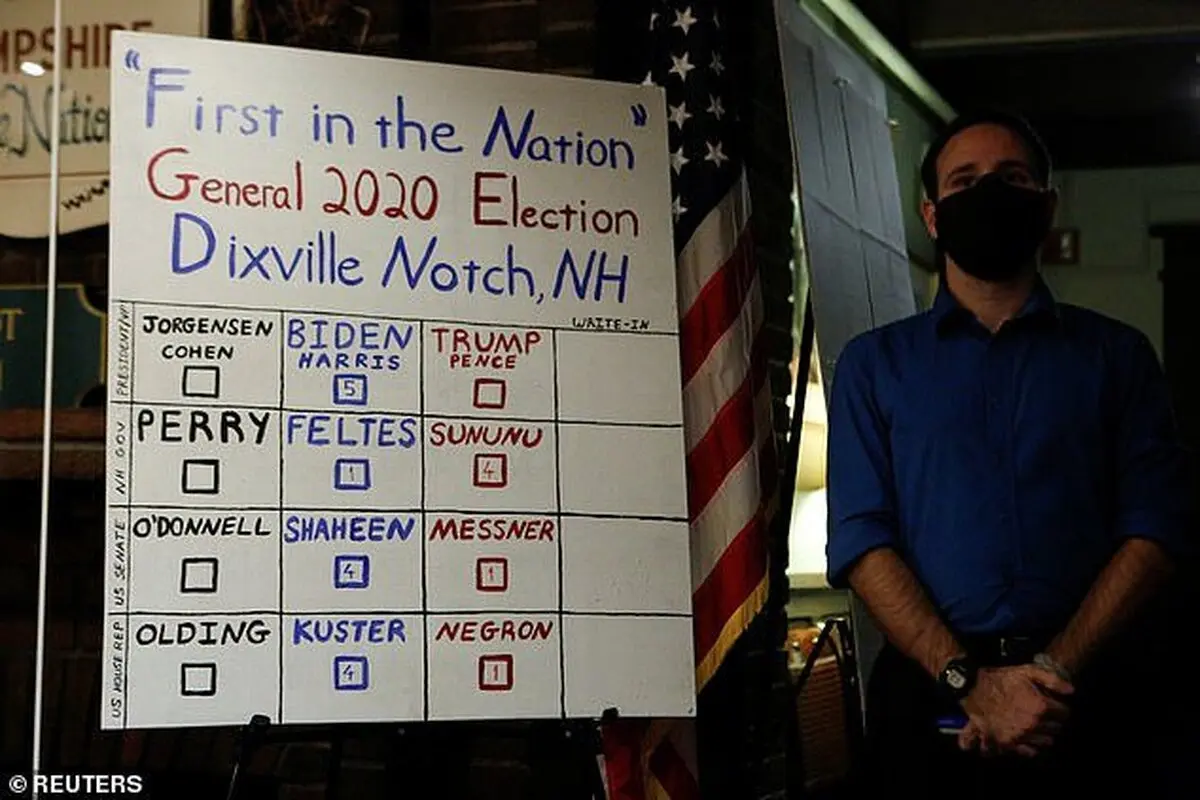 "First in the Nation"
General 2020 Election
Dixville Notch, NH
WRITE-IN
PRESIDENT/VP
JORGENSEN
COHEN
BIDEN
HARRIS
5
TRUMP
PENCE
NH GOV
PERRY
FELTES
1
SUNUNU
4
US SENATE
O'DONNELL
SHAHEEN
4
MESSNER
1
US HOUSE REP
OLDING
KUSTER
4
NEGRON
1
MPSHIRE
www.
© REUTERS